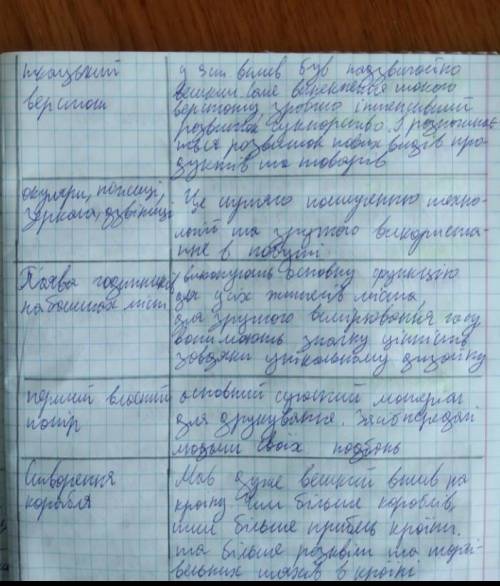 ткацький
верстат
у 5 ст. вплив був надзвичайно
великий. Саме винекнення такого
верстату зробило інтенсивний
розвиток сукнарства. І розпочина-
ться розвиток нових видів про-
дуктів та товарів
окуляри, ножиці,
зеркала, дзвіниці.
Це сприяло поліпшенню техно-
логій та зручного використа-
ння в побуті
Поява годинників
на баштах міст
виконують основну функцію
для усіх жителів міста,
для зручного вимірювання часу
вони мають значну цінність
завдяки унікальному дизайну
перший власний
папір
основний сучасний матеріал
для друкування.
людьми своїх
Створення
корабля
Мав дуже великий вплив на
країну. Чим більше кораблів,
тим більше прибель країни.
та більше розквіт та торгі-
вельних шляхів в країні